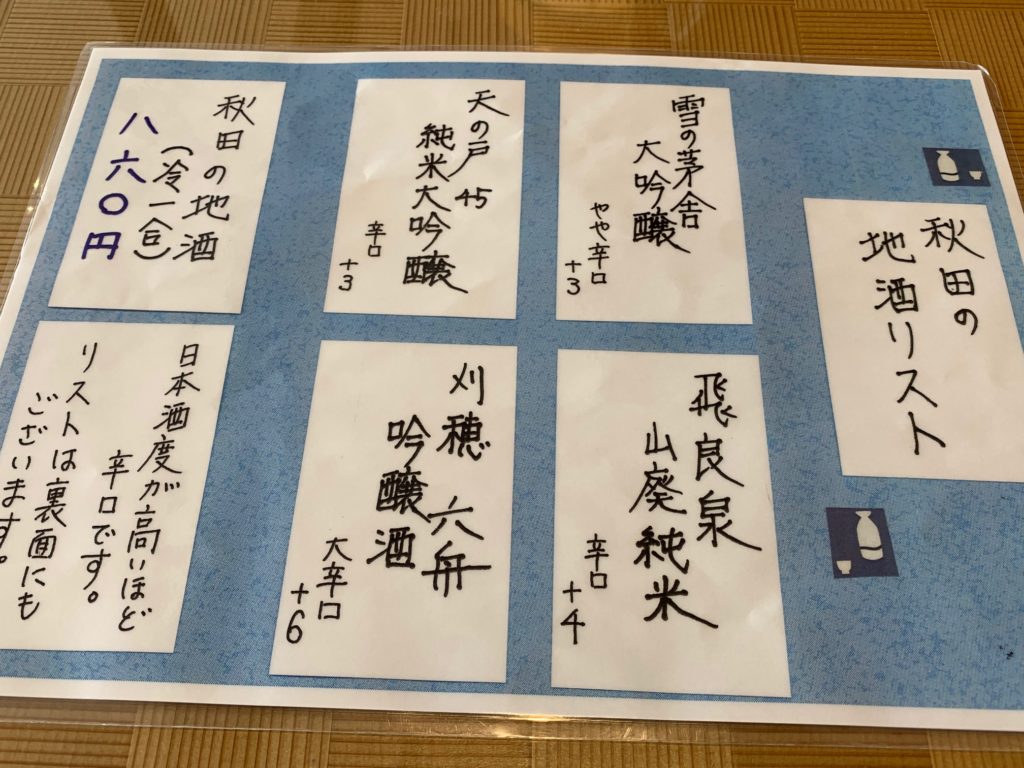 秋田の
地酒リスト
雪の茅舎
大吟醸
やや辛口
+3
飛良泉
山廃純米
辛口
+4
天の戸 45
純米大吟醸
辛口
+3
刈穂 六舟
吟醸酒
大辛口
+6
秋田の地酒
(冷一合)
八六〇円
日本酒度が高いほど
辛口です。
リストは裏面にも
ございます。